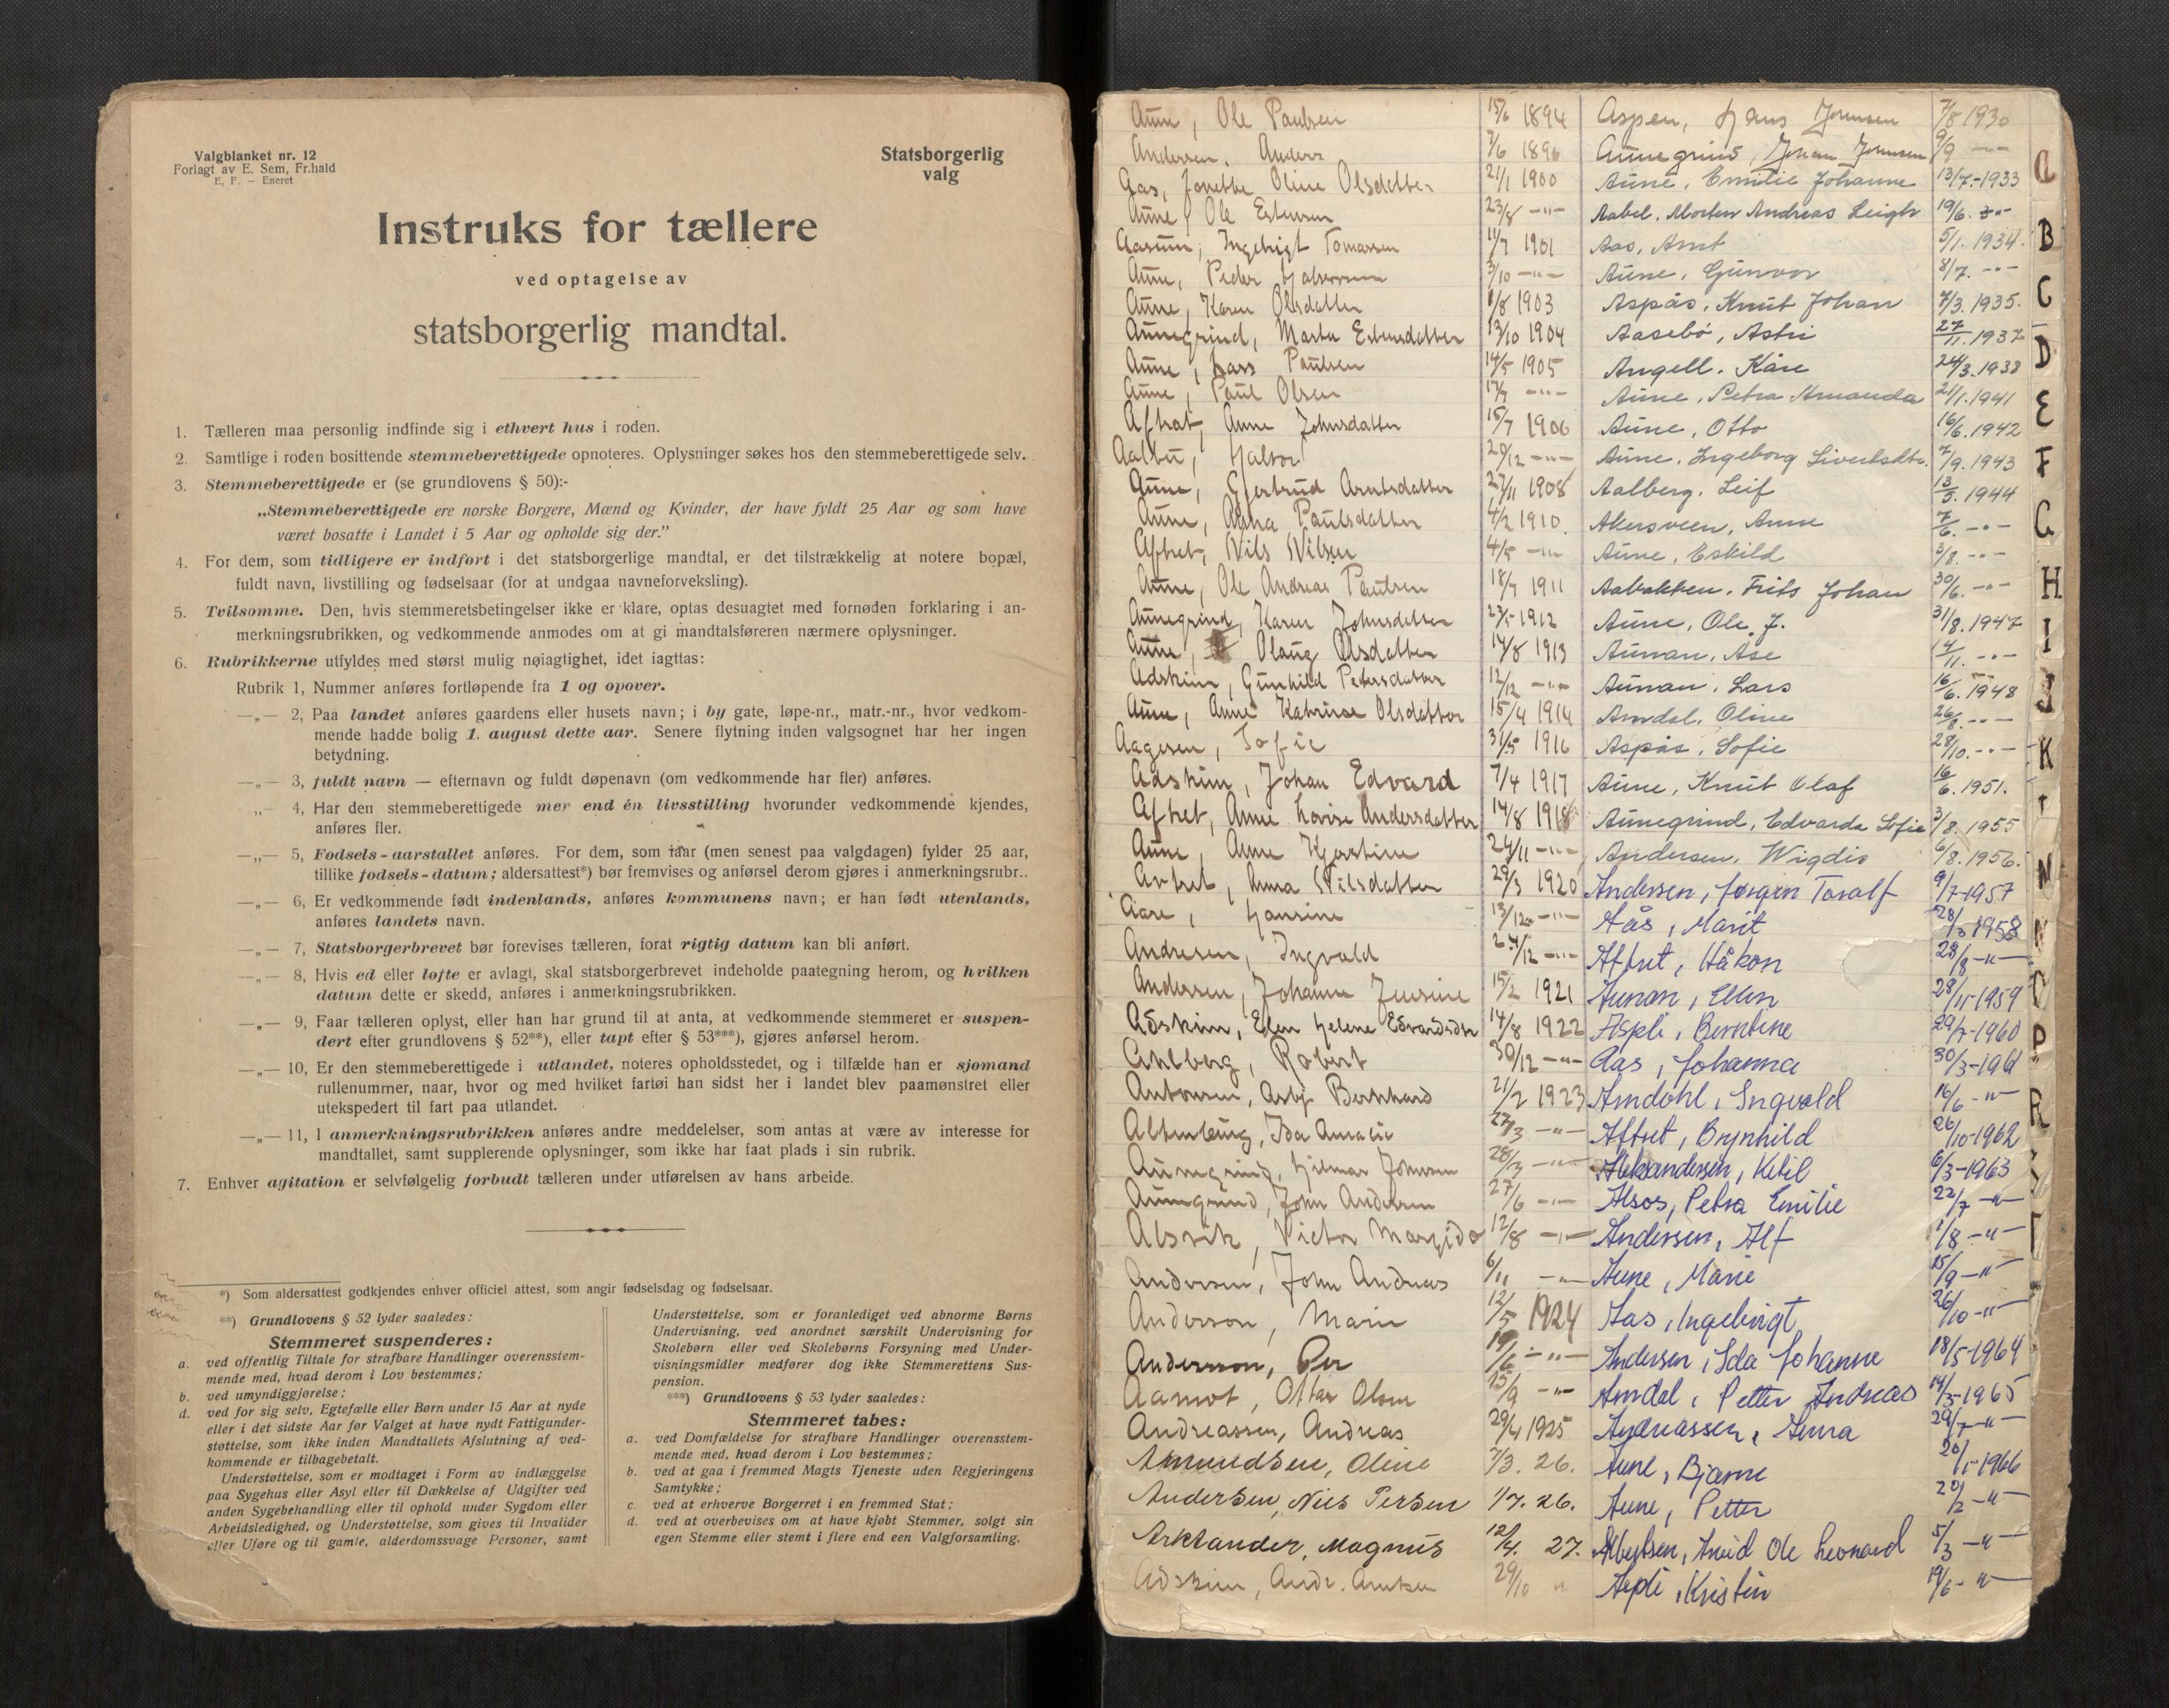 Valgblanket nr. 12
Forlagt av E. Sem, Fr.hald
E. F. — Eneret
Statsborgerlig
valg
Instruks for tællere
ved optagelse av
statsborgerlig mandtal.
1. Tælleren maa personlig indfinde sig i ethvert hus i roden.
2. Samtlige i roden bosittende stemmeberettigede opnoteres. Oplysninger søkes hos den stemmeberettigede selv.
3. Stemmeberettigede er (se grundlovens § 50):-
„Stemmeberettigede ere norske Borgere, Mænd og Kvinder, der have fyldt 25 Aar og som have
været bosatte i Landet i 5 Aar og opholde sig der."
4. For dem, som tidligere er indført i det statsborgerlige mandtal, er det tilstrækkelig at notere bopæl,
fuldt navn, livstilling og fødselsaar (for at undgaa navneforveksling).
5. Tvilsomme. Den, hvis stemmeretsbetingelser ikke er klare, optas desuagtet med fornøden forklaring i an-
merkningsrubrikken, og vedkommende anmodes om at gi mandtalsføreren nærmere oplysninger.
6. Rubrikkerne utfyldes med størst mulig nøiagtighet, idet iagttas:
Rubrik 1, Nummer anføres fortløpende fra 1 og opover.
—„— 2, Paa landet anføres gaardens eller husets navn; i by gate, løpe-nr., matr.-nr., hvor vedkom-
mende hadde bolig 1. august dette aar. Senere flytning inden valgsognet har her ingen
betydning.
—„— 3, fuldt navn — efternavn og fuldt døpenavn (om vedkommende har fler) anføres.
—„— 4, Har den stemmeberettigede mer end én livsstilling hvorunder vedkommende kjendes,
anføres fler.
—„— 5, Fødsels-aarstallet anføres. For dem, som iaar (men senest paa valgdagen) fylder 25 aar,
tillike fødsels-datum; aldersattest*) bør fremvises og anførsel derom gjøres i anmerkningsrubr..
—„— 6, Er vedkommende født indenlands, anføres kommunens navn; er han født utenlands,
anføres landets navn.
—„— 7, Statsborgerbrevet bør forevises tælleren, forat rigtig datum kan bli anført.
—„— 8, Hvis ed eller løfte er avlagt, skal statsborgerbrevet indeholde paategning herom, og hvilken
datum dette er skedd, anføres i anmerkningsrubrikken.
—„— 9, Faar tælleren oplyst, eller han har grund til at anta, at vedkommende stemmeret er suspen-
dert efter grundlovens § 52**), eller tapt efter § 53***), gjøres anførsel herom.
—„— 10, Er den stemmeberettigede i utlandet, noteres opholdsstedet, og i tilfælde han er sjømand
rullenummer, naar, hvor og med hvilket fartøi han sidst her i landet blev paamønstret eller
utekspedert til fart paa utlandet.
—„— 11, I anmerkningsrubrikken anføres andre meddelelser, som antas at være av interesse for
mandtallet, samt supplerende oplysninger, som ikke har faat plads i sin rubrik.
7. Enhver agitation er selvfølgelig forbudt tælleren under utførelsen av hans arbeide.
*) Som aldersattest godkjendes enhver officiel attest, som angir fødselsdag og fødselsaar.
**) Grundlovens § 52 lyder saaledes:
Stemmeret suspenderes:
a. ved offentlig Tiltale for strafbare Handlinger overensstem-
mende med, hvad derom i Lov bestemmes;
b. ved umyndiggjørelse;
d. ved for sig selv, Egtefælle eller Børn under 15 Aar at nyde
eller i det sidste Aar før Valget at have nydt Fattigunder-
støttelse, som ikke inden Mandtallets Afslutning af ved-
kommende er tilbagebetalt.
Understøttelse, som er modtaget i Form av indlæggelse
paa Sygehus eller Asyl eller til Dækkelse af Udgifter ved
anden Sygebehandling eller til ophold under Sygdom eller
Arbeidsledighed, og Understøttelse, som gives til Invalider
eller Uføre og til gamle, alderdomssvage Personer, samt
Understøttelse, som er foranlediget ved abnorme Børns
Undervisning, ved anordnet særskilt Undervisning for
Skolebørn eller ved Skolebørns Forsyning med Under-
visningsmidler medfører dog ikke Stemmerettens Sus-
pension.
***) Grundlovens § 53 lyder saaledes:
Stemmeret tabes:
a. ved Domfældelse for strafbare Handlinger overensstem-
mende med, hvad derom i Lov bestemmes;
b. ved at gaa i fremmed Magts Tjeneste uden Regjeringens
Samtykke;
c. ved at erhverve Borgerret i en fremmed Stat;
d. ved at overbevises om at have kjøbt Stemmer, solgt sin
egen Stemme eller stemt i flere end een Valgforsamling.
Aune, Ole Paulsen 15/6 1894
Andersen, Anders 7/6 1896
Oline Olsdatter 21/1 1900
Aune, Ole Estensen 23/8 —"—
Aasum, Ingebrigt Tomassen 11/7 1901
Aune, Peder Halvorsen 3/10 —"—
Aune, Karen Olsdatter 1/8 1903
Aunegrind, Marta Estensdatter 13/10 1904
Aune, Lars Paulsen 14/5 1905
Aune, Paul Olsen 17/7 —"—
Aftret, Anne Johnsdatter 15/7 1906
Aalbu, Halvor 29/12 —"—
Aune, Gjertrud Arntsdatter 27/11 1908
Aune, Anna Paulsdatter 4/2 1910
Aftret, Nils Nilsen 4/5 —"—
Aune, Ole Andreas Paulsen 18/7 1911
Aunegrind, Karen Johnsdatter 27/5 1912
Aune, Olaug Olsdatter 14/8 1913
Adskim, Gunhild Petersdatter 12/12 —"—
Aune, Anne Katrine Olsdatter 15/4 1914
Aagesen, Sofie 31/5 1916
Adskim, Johan Edvard 7/4 1917
Aftret, Anne Lovise Andersdatter 14/8 1918
Aune, Anne Kjerstine 24/11 —"—
Avtret, Anna Nilsdatter 29/3 1920
Aare, Hansine 13/12 —"—
Andresen, Ingvald 24/12 —"—
Andersen, Johanne Jensine 15/2 1921
Adskim, Elen Helene Edvardsdtr 14/8 1922
Ahlberg, Robert 30/12 —"—
Antonsen, Asbj. Bernhard 21/2 1923
Altenburg, Ida Amalie 27/3 —"—
Aunegrind, Hilmar Johnsen 28/3 —"—
Aunegrind, John Andersen 27/6 —"—
Alsvik, Victor 12/8 —"—
Andersen, John Andreas 6/11 —"—
Anderson, Marie 12/5 1924
Andersson, Per 19/6 —"—
Aamot, Ottar Olsen 15/9 —"—
Andreassen, Andreas 29/4 1925
Amundsen, Oline 7/3. 26.
Andersen, Nils Persen 1/7. 26.
Arktander, Magnus 12/4. 27.
Adskim, Andr. Arntsen 29/10 "
Aspen, Hans Jensen 7/8 1930
Aunegrind, Johan Johnsen 9/9 —"—
Aune, Emilie Johanne 13/7.-1933
Aabel, Morten Andreas Leigh 19/6. —"—
Aas, Arnt 5/1. 1934.
Aune, Gunvor 8/7. —"—
Aspås, Knut Johan 7/3. 1935.
Aasebø, Astri 27/11. 1937
Angell, Kåre 24/3. 1938
Aune, Petra Amanda 21/1. 1941
Aune, Otto 16/6. 1942
Aune, Ingeborg Sivertsdtr. 7/9. 1943
Aalberg, Leif 13/3. 1944
Akersveen, Anne 7/6. —"—
Aune, Eskild 3/8. —"—
Aabakken, Frits Johan 30/6. —"—
Aune, Ole J. 31/8. 1947
Aunan, Åse 14/11. —"—
Aunan, Lars 16/6. 1948
Amdal, Oline 26/8. —"—
Aspås, Sofie 28/10. —"—
Aune, Knut Olaf 16/6. 1951.
Aunegrind, Edvarda Sofie 3/8. 1955
Andersen, Wigdis 6/8. 1956.
Andersen, Jørgen Toralf 9/7-1957
Aås, Marit 28/3-1958
Aftret, Håkon 28/8 —"—
Aunan, Ellen 28/11-1959
Aspli, Berntine 29/7-1960
Aas, Johanna 30/3-1961
Amdahl, Ingvald 16/6 —"—
Aftret, Brynhild 26/10-1962
Aleksandersen, Ketil 6/3-1963
Alsos, Petra Emilie 22/7 —"—
Andersen, Alf 1/8 —"—
Aune, Marie 15/9 —"—
Aas, Ingebrigt 26/10 —"—
Andersen, Ida Johanne 18/5-1964
Amdal, Petter Andreas 14/3-1965
Andreassen, Anna 29/7 —"—
Aune, Bjarne 20/1-1966
Aune, Petter 20/2 —"—
Albertsen, Arvid Ole Leonard 5/3 —"—
Aspli, Kristin 19/6 —"—
A
B
C
D
E
F
G
H
I
J
K
M
N
O
P
R